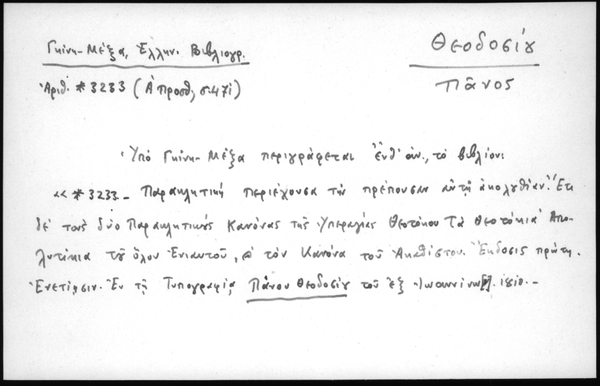 Γκίνη-Μέξα, Ἑλλην. Βιβλιογρ.
Θεοδοσίου
Ἀριθ. *3233 (Α΄ προσθ, σ.471)
Πᾶνος
Ὑπό Γκίνη-Μέξα περιγράφεται ἔνθ' ἀν., τό βιβλίον:
«*3233.- Παρακλητική περιέχουσα τήν πρέπουσαν αὐτῇ ἀκολυθίαν. Ἔτι
δέ τούς δύο Παρακλητικούς κανόνας τῆς Ὑπεραγίας Θεοτόκου Τά Θεοτόκια Ἀπο-
λυτίκια τοῦ ὅλου Ἐνιαυτοῦ, τόν Κανόνα τοῦ Ἀκαθίστου. Ἔκδοσις πρώτη.
Ἐνετίησιν. Ἐν τῇ Τυπογραφίᾳ Πάνου Θεοδοσίου τοῦ ἐξ Ἰωαννίνων.